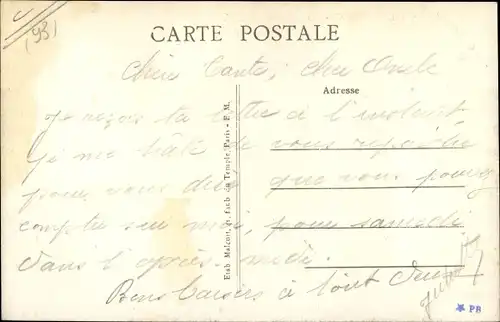 (93)
CARTE POSTALE
Chère Tante, Cher Oncle
Adresse
je reçois ta lettre à l'instant
je me hâte de vous répondre
pour vous dire que vous pouvez
compter sur moi, pour samedi
dans l'après-midi.
Bons Baisers à tout deux
Etab. Malcuit, 41, faub. du Temple, Paris - P. M.
PB